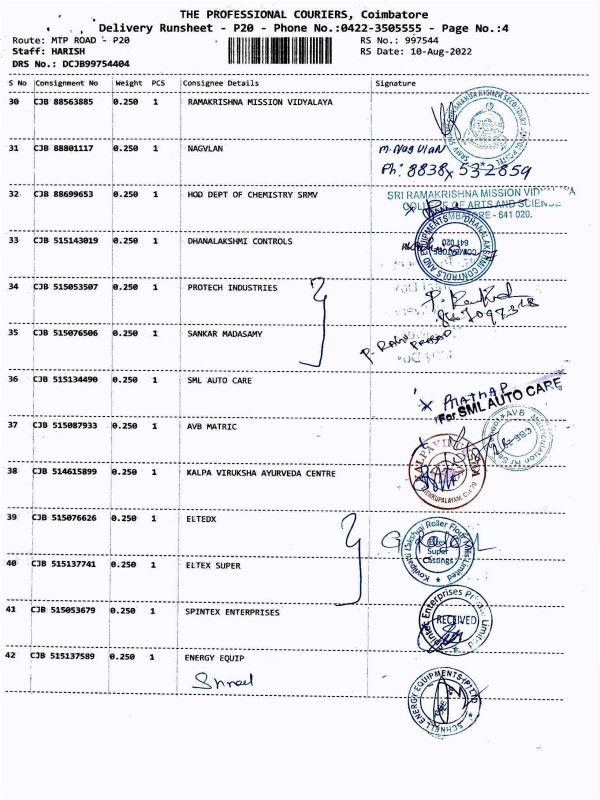 THE PROFESSIONAL COURIERS, Coimbatore
Delivery Runsheet - P20 - Phone No.:0422-3505555 - Page No.:4
Route: MTP ROAD - P20 RS No.: 997544
Staff: HARISH RS Date: 10-Aug-2022
DRS No.: DCJB99754404
S No Consignment No Weight PCS Consignee Details Signature
30 CJB 88563885 0.250 1 RAMAKRISHNA MISSION VIDYALAYA
31 CJB 88801117 0.250 1 NAGVLAN M. Nagulan
Ph: 8838x532859
32 CJB 88699653 0.250 1 HOD DEPT OF CHEMISTRY SRMV SRI RAMAKRISHNA MISSION
COLLEGE OF ARTS AND SCIENCE
- 641 020.
33 CJB 515143019 0.250 1 DHANALAKSHMI CONTROLS DHANALAKSHMI CONTROLS AND EQUIPMENTS
COIMBATORE 641 020
34 CJB 515053507 0.250 1 PROTECH INDUSTRIES
35 CJB 515076506 0.250 1 SANKAR MADASAMY
36 CJB 515134490 0.250 1 SML AUTO CARE PRATHAP
For SML AUTO CARE
37 CJB 515087933 0.250 1 AVB MATRIC
38 CJB 514615899 0.250 1 KALPA VIRUKSHA AYURVEDA CENTRE
39 CJB 515076626 0.250 1 ELTEDX
40 CJB 515137741 0.250 1 ELTEX SUPER Kovilpatti Lakshmi Roller Flour Mills Limited
Eltex
Super
Castings
41 CJB 515053679 0.250 1 SPINTEX ENTERPRISES Enterprises Private Limited
RECEIVED
42 CJB 515137589 0.250 1 ENERGY EQUIP
SCHNELL ENERGY EQUIPMENTS (P) LTD